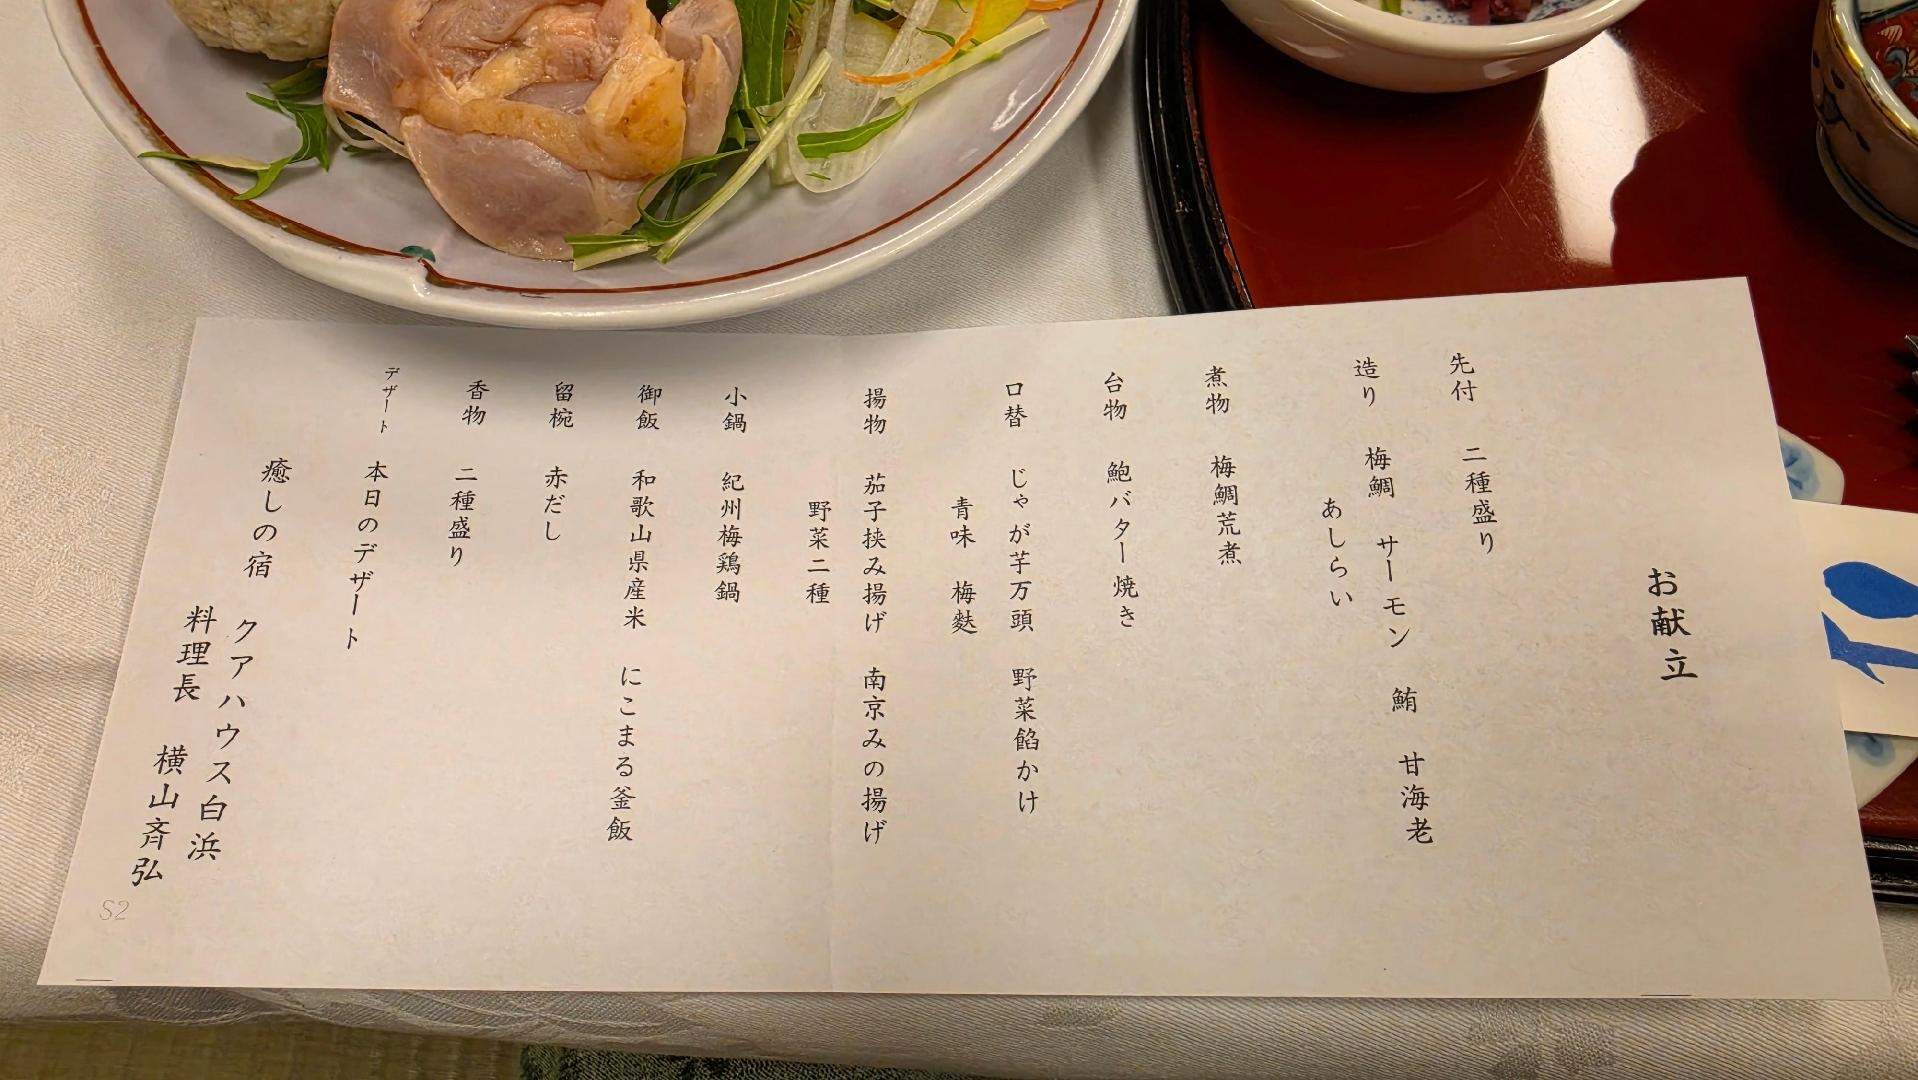 お献立
先付 二種盛り
造り 梅鯛 サーモン 鮪 甘海老
あしらい
煮物 梅鯛荒煮
台物 鮑バター焼き
口替 じゃが芋万頭 野菜餡かけ
青味 梅麩
揚物 茄子挟み揚げ 南京みの揚げ
野菜二種
小鍋 紀州梅鶏鍋
御飯 和歌山県産米 にこまる釜飯
留椀 赤だし
香物 二種盛り
デザート 本日のデザート
癒しの宿 クアハウス白浜
料理長 横山斉弘
S2